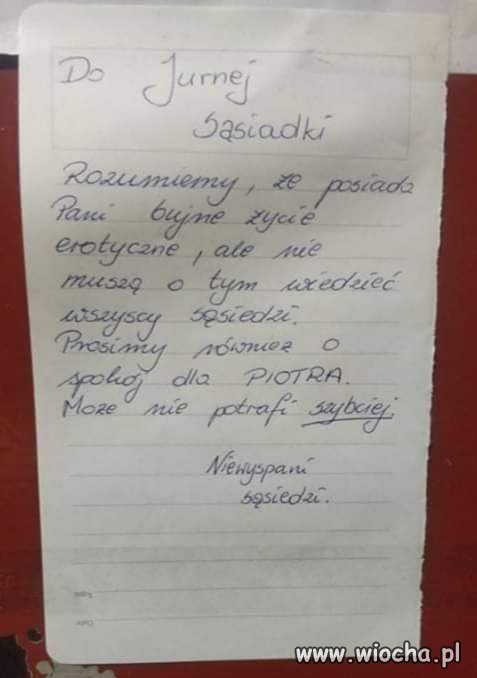 Do Jurnej
Sąsiadki
Rozumiemy, że posiada
Pani bujne życie
erotyczne, ale nie
muszą o tym wiedzieć
wszyscy sąsiedzi.
Prosimy również o
spokój dla PIOTRA.
Może nie potrafi szybciej.
Niewyspani
sąsiedzi.
www.wiocha.pl